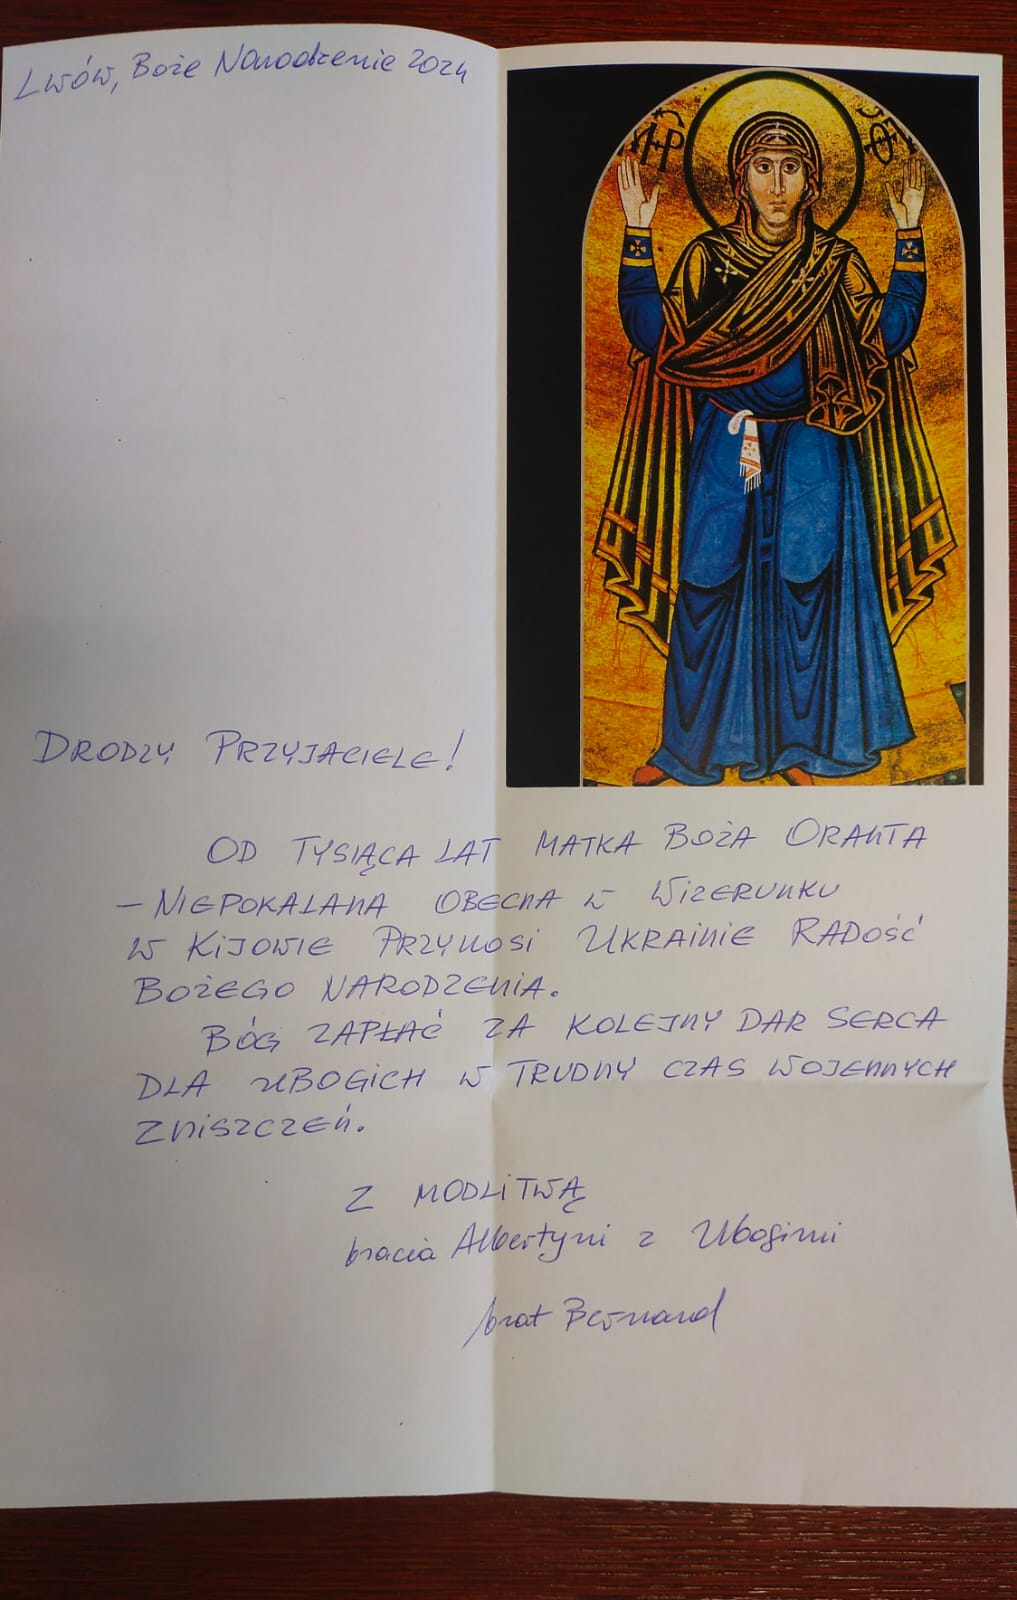 Lwów, Boże Narodzenie 2024
DRODZY PRZYJACIELE!
OD TYSIĄCA LAT MATKA BOŻA ORANTA
– NIEPOKALANA OBECNA W WIZERUNKU
W KIJOWIE PRZYNOSI UKRAINIE RADOŚĆ
BOŻEGO NARODZENIA.
BÓG ZAPŁAĆ ZA KOLEJNY DAR SERCA
DLA UBOGICH W TRUDNY CZAS WOJENNYCH
ZNISZCZEŃ.
Z MODLITWĄ
bracia Albertyni z Ubogimi
brat Bernard